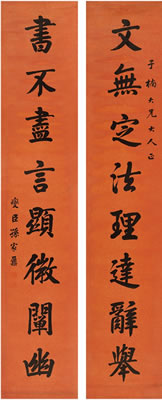 文無定法理達辭舉
子楠大兄大人正
書不盡言顯微闡幽
燮臣孫家鼐